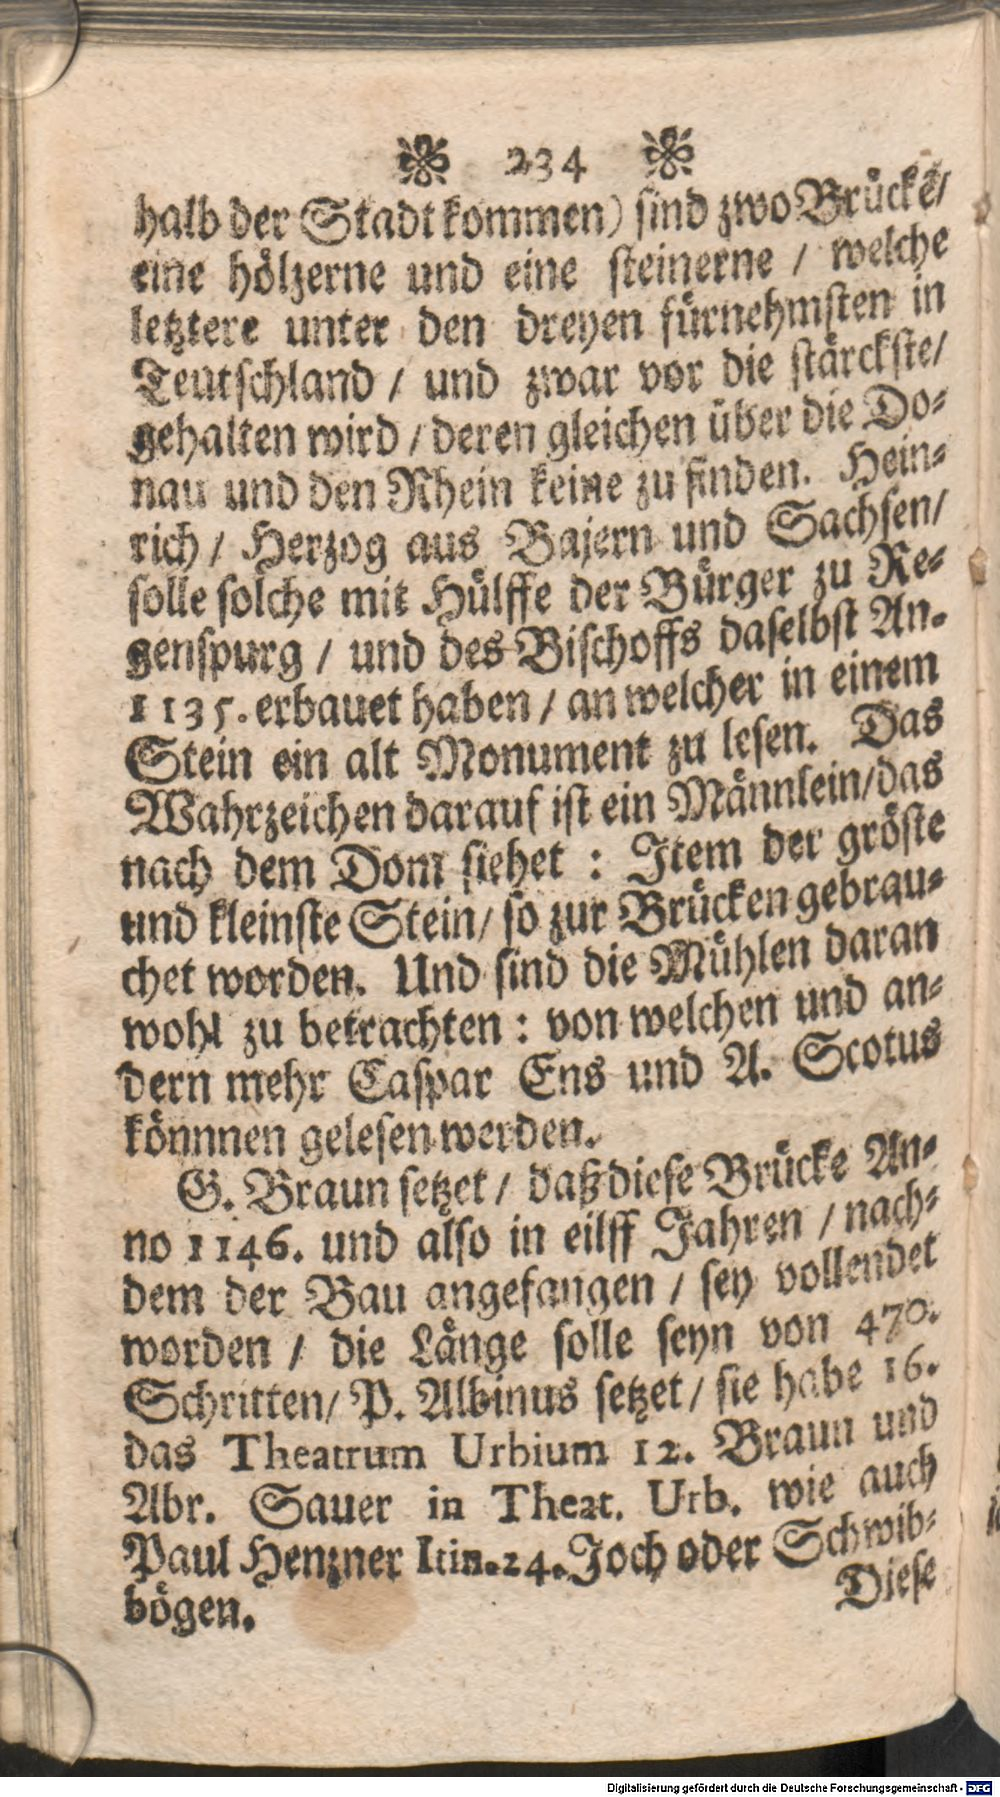 234
halb der Stadt kommen) sind zwo Brücke/
eine hölzerne und eine steinerne / welche
letztere unter den dreyen fürnehmsten in
Teutschland / und zwar vor die stärckste/
gehalten wird / deren gleichen über die Do-
nau und den Rhein keine zu finden. Hein-
rich / Herzog aus Bajern und Sachsen/
solle solche mit Hülffe der Bürger zu Re-
genspurg / und des Bischoffs daselbst An-
1135. erbauet haben / an welcher in einem
Stein ein alt Monument zu lesen. Das
Wahrzeichen darauf ist ein Männlein/das
nach dem Dom siehet : Item der gröste
und kleinste Stein/ so zur Brücken gebrau-
chet worden. Und sind die Mühlen daran
wohl zu betrachten : von welchen und an-
dern mehr Caspar Ens und A. Scotus
könnnen gelesen werden.
G. Braun setzet / daß diese Brücke An-
no 1146. und also in eilff Jahren / nach-
dem der Bau angefangen / sey vollendet
worden / die Länge solle seyn von 470.
Schritten/ P. Albinus setzet / sie habe 16.
das Theatrum Urbium 12. Braun und
Abr. Sauer in Theat. Urb. wie auch
Paul Henzner Itin. 24. Joch oder Schwib-
bögen.
Diese
Digitalisierung gefördert durch die Deutsche Forschungsgemeinschaft - DFG